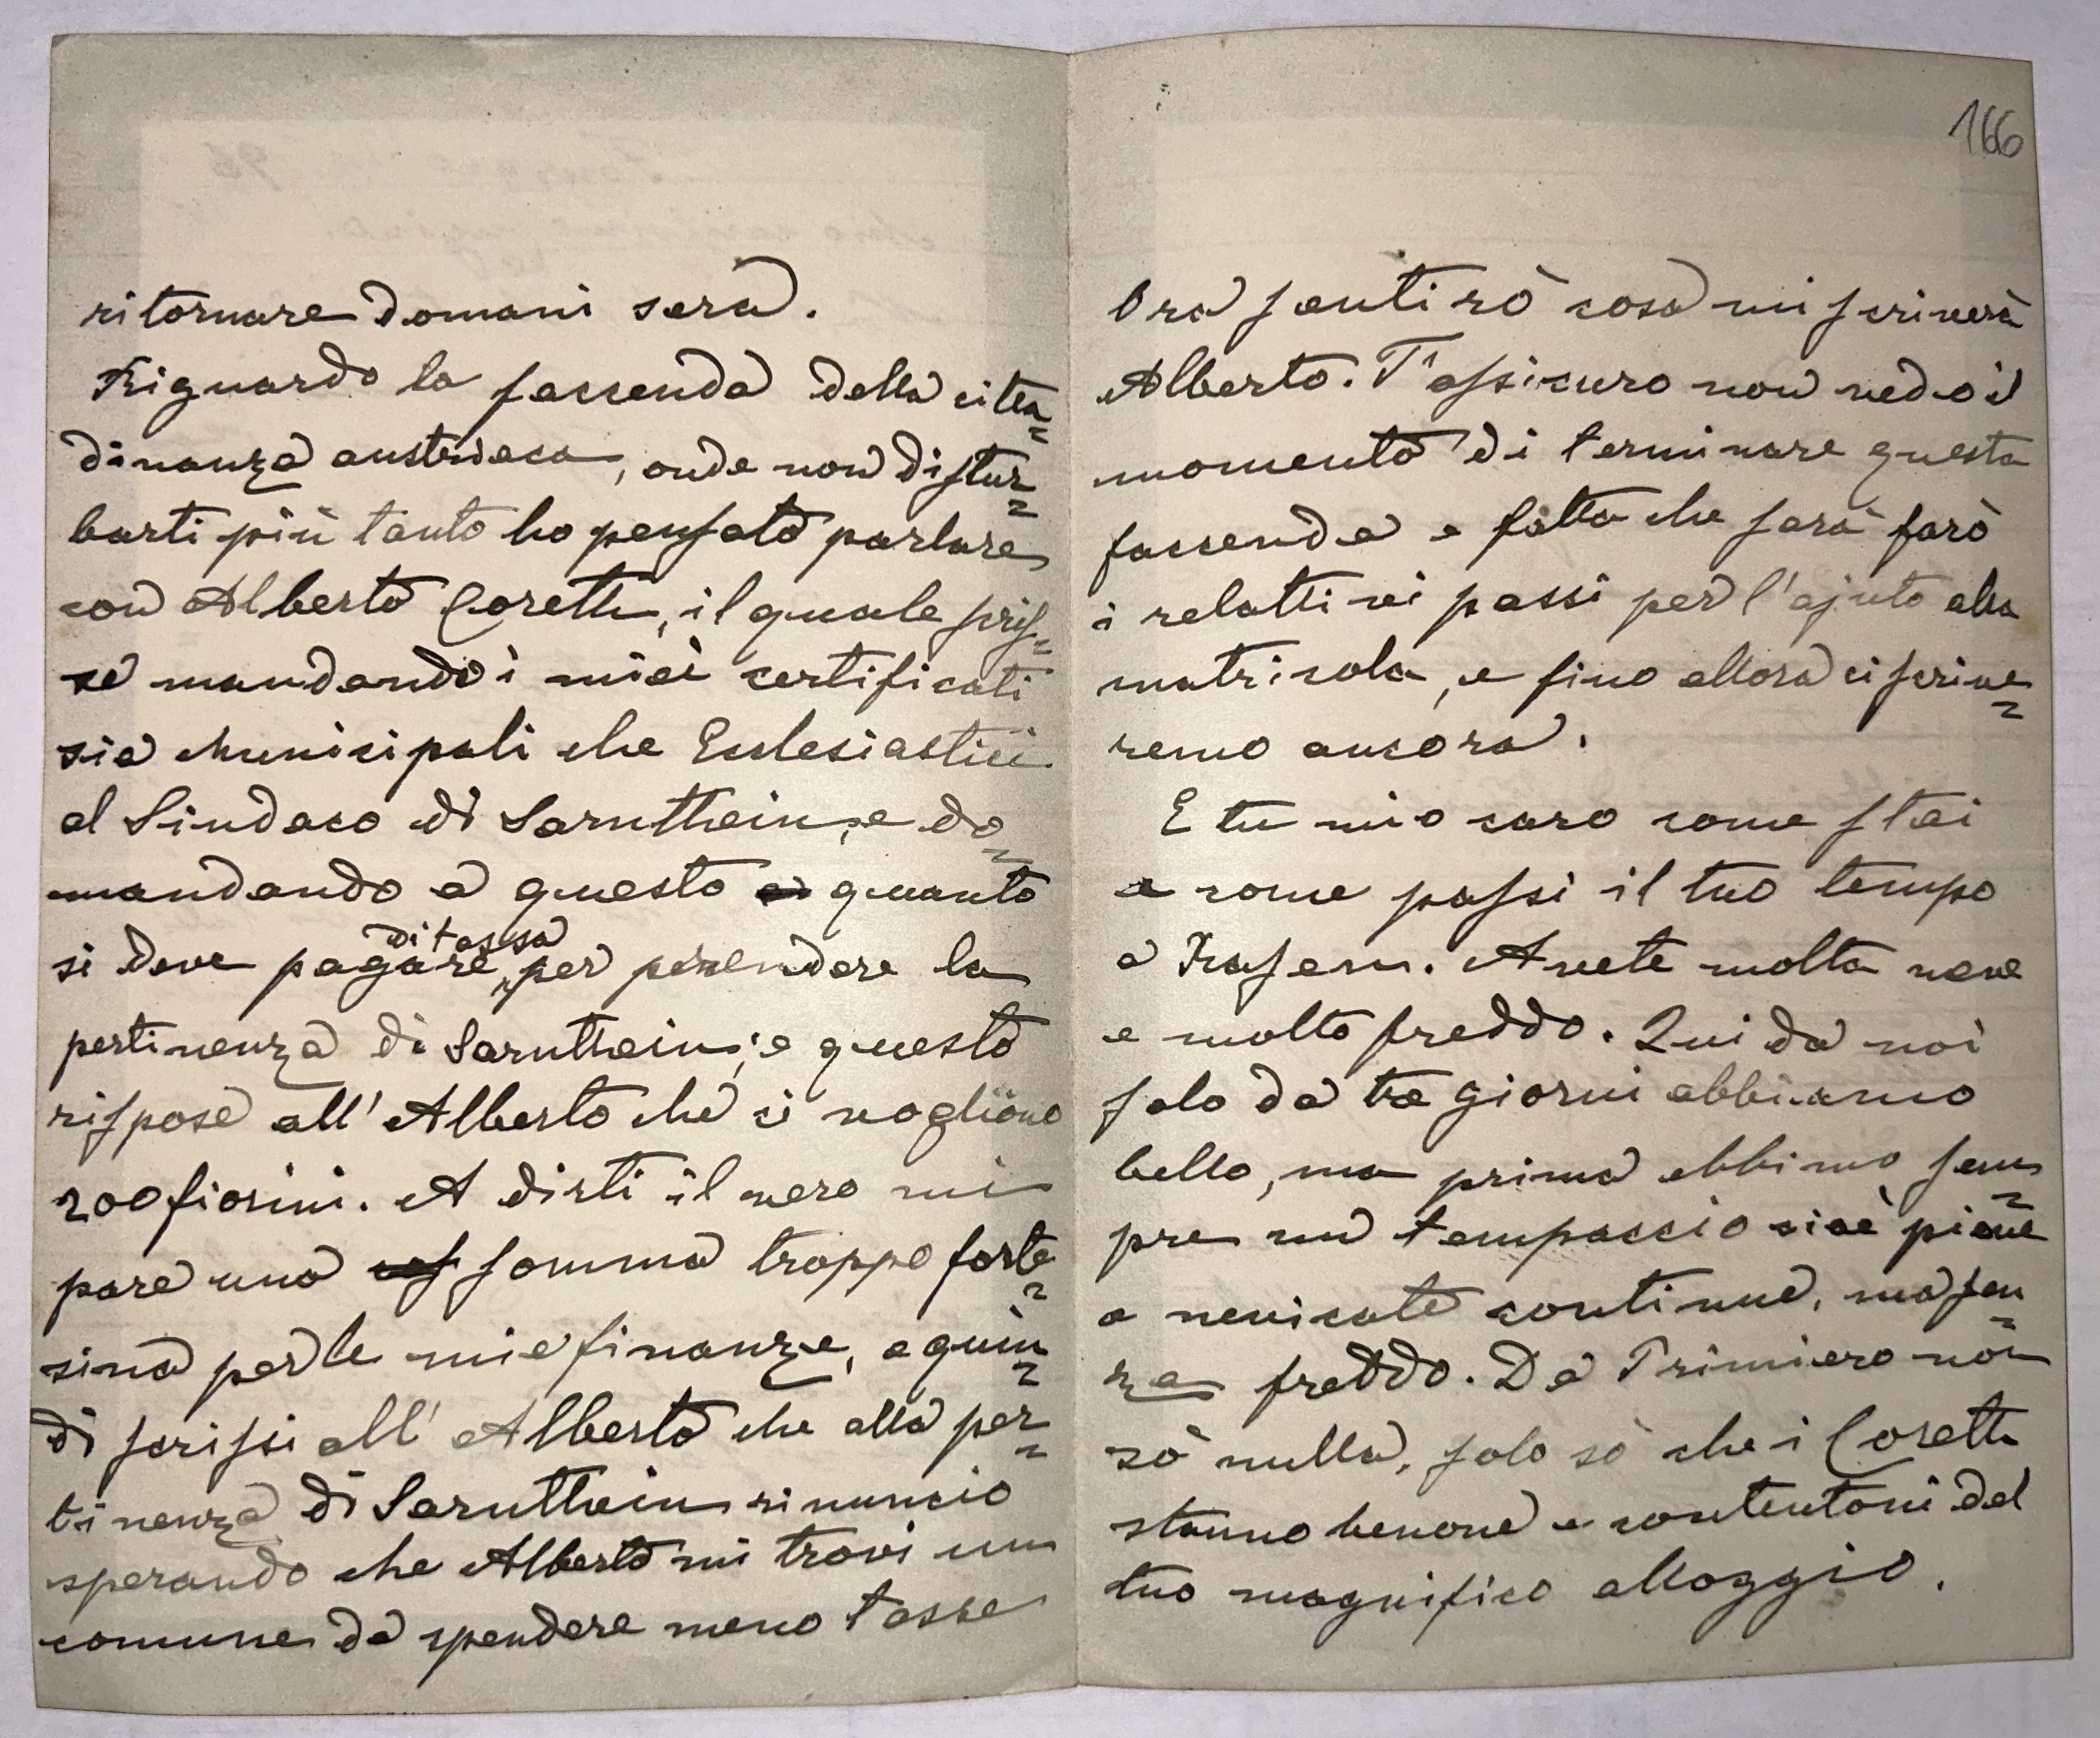 ritornare domani sera.
Riguardo la faccenda della citta=
dinanza austriaca, onde non distur=
barti più tanto ho pensato parlare
con Alberto Coretti, il quale scris=
se mandando i miei certificati
sia Municipali che Ecclesiastici
al Sindaco di Sarnthein, e do=
mandando a questo quanto
di tassa
si deve pagare, per prendere la
pertinenza di Sarnthein; e questo
rispose all' Alberto che ci vogliono
200 fiorini. A dirti il vero mi
pare una somma troppo forte=
sina per le mie finanze, e quin=
di scrissi all' Alberto che alla per=
tinenza di Sarnthein rinuncio
sperando che Alberto mi trovi un
comune da spendere meno tasse
166
Ora sentirò cosa mi scriverà
Alberto. T'assicuro non vedo il
momento di terminare questa
faccenda e fatta che sarà farò
i relattivi passi per l'ajuto alla
matricola, e fino allora ci scrive=
remo ancora.
E tu mio caro come stai
e come passi il tuo tempo
a Avete molta neve
e molto freddo. Qui da noi
solo da tre giorni abbiamo
bello, ma prima ebbimo sem=
pre un tempaccio cioè piove
o nevicate continue, ma sen=
za freddo. Da Primiero non
sò nulla, solo sò che i Coretti
stanno benone e contentoni del
tuo magnifico alloggio.